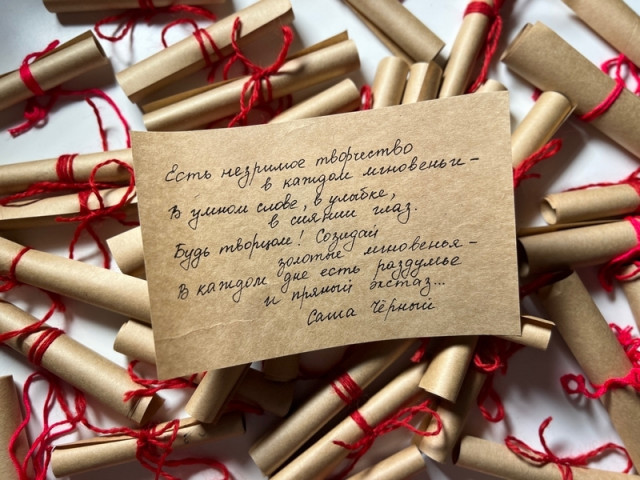 Есть незримое творчество
в каждом мгновеньи –
В умном слове, в улыбке,
в сиянии глаз.
Будь творцом! Созидай
золотые мгновенья –
В каждом дне есть раздумье
и пряный экстаз...
Саша Чёрный